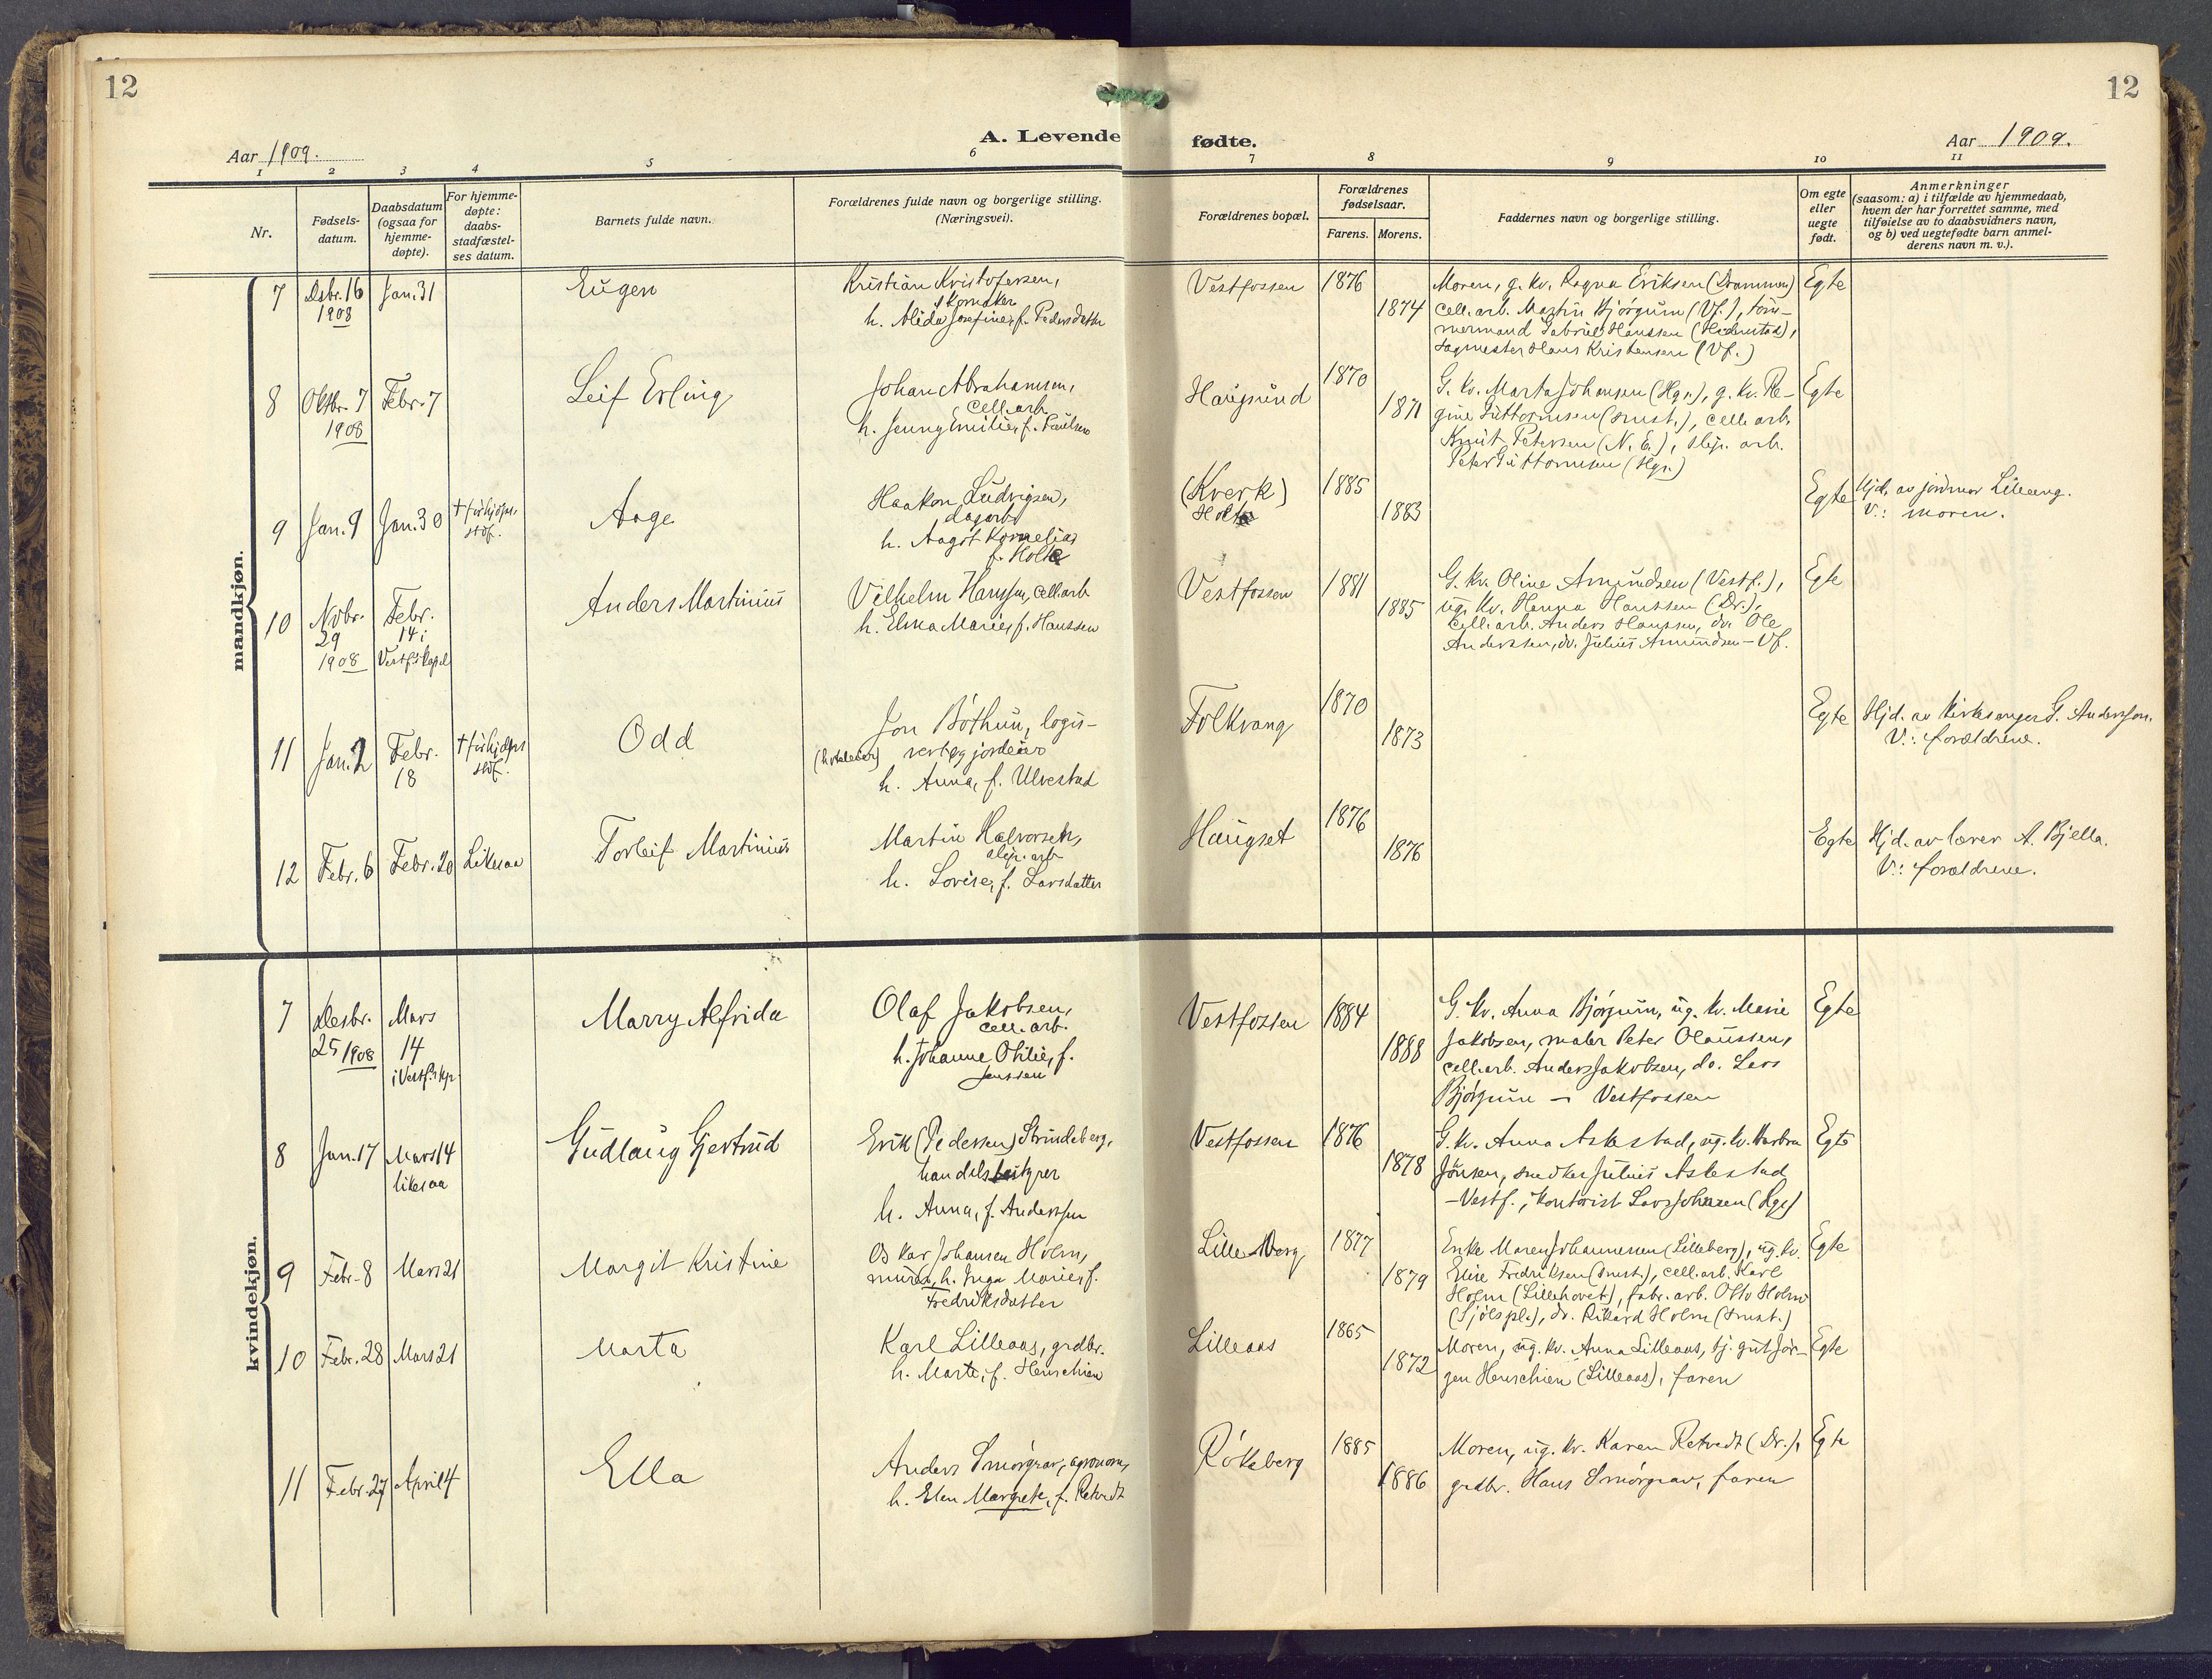 12
12
A. Levende fødte.
Aar 1909.
Aar 1909.
1 2 3 4 5 6 7 8 9 10 11
Nr.
Fødsels-
datum.
Daabsdatum
(ogsaa for
hjemme-
døpte).
For hjemme-
døpte:
daabs-
stadfæstel-
ses datum.
Barnets fulde navn.
Forældrenes fulde navn og borgerlige stilling.
(Næringsvei).
Forældrenes bopæl.
Forældrenes
fødselsaar.
Farens. Morens.
Faddernes navn og borgerlige stilling.
Om egte
eller
uegte
født.
Anmerkninger
(saasom: a) i tilfælde av hjemmedaab,
hvem der har forrettet samme, med
tilføielse av to daabsvidners navn,
og b) ved uegtefødte barn anmel-
derens navn m. v.).
mandkjøn.
7
Dsbr. 16
1908
Jan. 31
Eugen
Kristian Kristofersen,
skomaker
h. Alida Josefine, f. Pedersdatter
Vestfossen
1876
1874
Moren, g. kv. Ragna Eriksen (Drammen)
cell. arb. Martin Bjørgum (Vf.), tøm-
mermand Gabriel Hanssen (Hedenstad),
sagmester Hans Kristensen (Vf.)
Egte
8
Oktbr. 7
1908
Febr. 7
Leif Erling
Johan Abrahamsen,
cell. arb.
h. Jenny Emilie, f. Paulsen
Haugsund
1870
1871
G. kv. Marta Johansen (Hgs.), g. kv. Re-
gine Guttormsen (smst.), cell. arb.
Knut Petersen (N. E.), slip. arb.
Peter Guttormsen (Hgs.)
Egte
9
Jan. 9
Jan. 30
† før hjdps.
stdf.
Aage
Haakon Ludvigsen,
dagarb.
h. Aagot Kornelia,
f. Holte
(Kverk)
Holte
1885
1883
Egte
Hjd. av jordmor Lilleeng.
V.: moren.
10
Novbr.
29
1908
Febr.
14 i
Vestf.s kapel
Anders Martinius
Vilhelm Hanssen, cell. arb
h. Elna Marie, f. Hanssen
Vestfossen
1881
1885
G. kv. Oline Amundsen (Vestf.),
ug. kv. Hanna Hanssen (Dr.),
cell. arb. Anders Hanssen, do. Ole
Anderssen, do. Julius Amundsen – Vf.
Egte
11
Jan. 2
Febr.
18
† før hjdps
stdf.
Odd
Jon Bøthun, logis-
(hoteleier) vert og jordeier
h. Anna, f. Ulvestad
Folkvang
1870
1873
Egte
Hjd. av kirkesanger G. Anderssen.
V.: forældrene.
12
Febr. 6
Febr. 20
Likesaa
Torleif Martinius
Martin Halvorsen,
slip. arb
h. Lovise, f. Larsdatter
Haugset
1876
1876
Egte
Hjd. av lærer A. Bjella.
V.: forældrene.
kvindekjøn.
7
Desbr.
25 1908
Mars
14
i Vestf.s kp.
Marry Alfrida
Olaf Jakobsen,
cell. arb.
h. Johanne Otilie, f.
Janssen
Vestfossen
1884
1888
G. kv. Anna Bjørgum, ug. kv. Marie
Jakobsen, maler Peter Olaussen,
cell. arb. Anders Jakobsen, do. Lars
Bjørgum – Vestfossen
Egte
8
Jan. 17
Mars 14
likesaa
Gudlaug Gjertrud
Erik (Pedersen) Strindeberg,
handelsbestyrer
h. Anna, f. Anderssen
Vestfossen
1876
1878
G. kv. Anna Askestad, ug. kv. Barbra
Jønsen, snedker Julius Askestad
– Vestf., kontorist Lars Johnsen (Hgs)
Egte
9
Febr. 8
Mars 21
Margit Kristine
Oskar Johansen Holm,
murer, h. Inga Marie, f.
Fredriksdatter
Lilleberg
1877
1879
Enke Maren Johannesen (Lilleberg), ug. kv.
Elise Fredriksen (smst.), cell. arb. Karl
Holm (Lillehovet), fabr. arb. Otto Holm
(Sjølspl.), do. Rikard Holm (smst.)
Egte
10
Febr. 28
Mars 21
Marta
Karl Lilleaas, grdbr.
h. Marte, f. Henschien
Lilleaas
1865
1872
Moren, ug. kv. Anna Lilleaas, tj. gut Jør-
gen Henschien (Lilleaas), faren
Egte
11
Febr. 27
April 4
Ella
Anders Smørgrav, agronom,
h. Elen Margrete, f. Retvedt
Røkeberg
1885
1886
Moren, ug. kv. Karen Retvedt (Dr.),
grdbr. Hans Smørgrav, faren
Egte